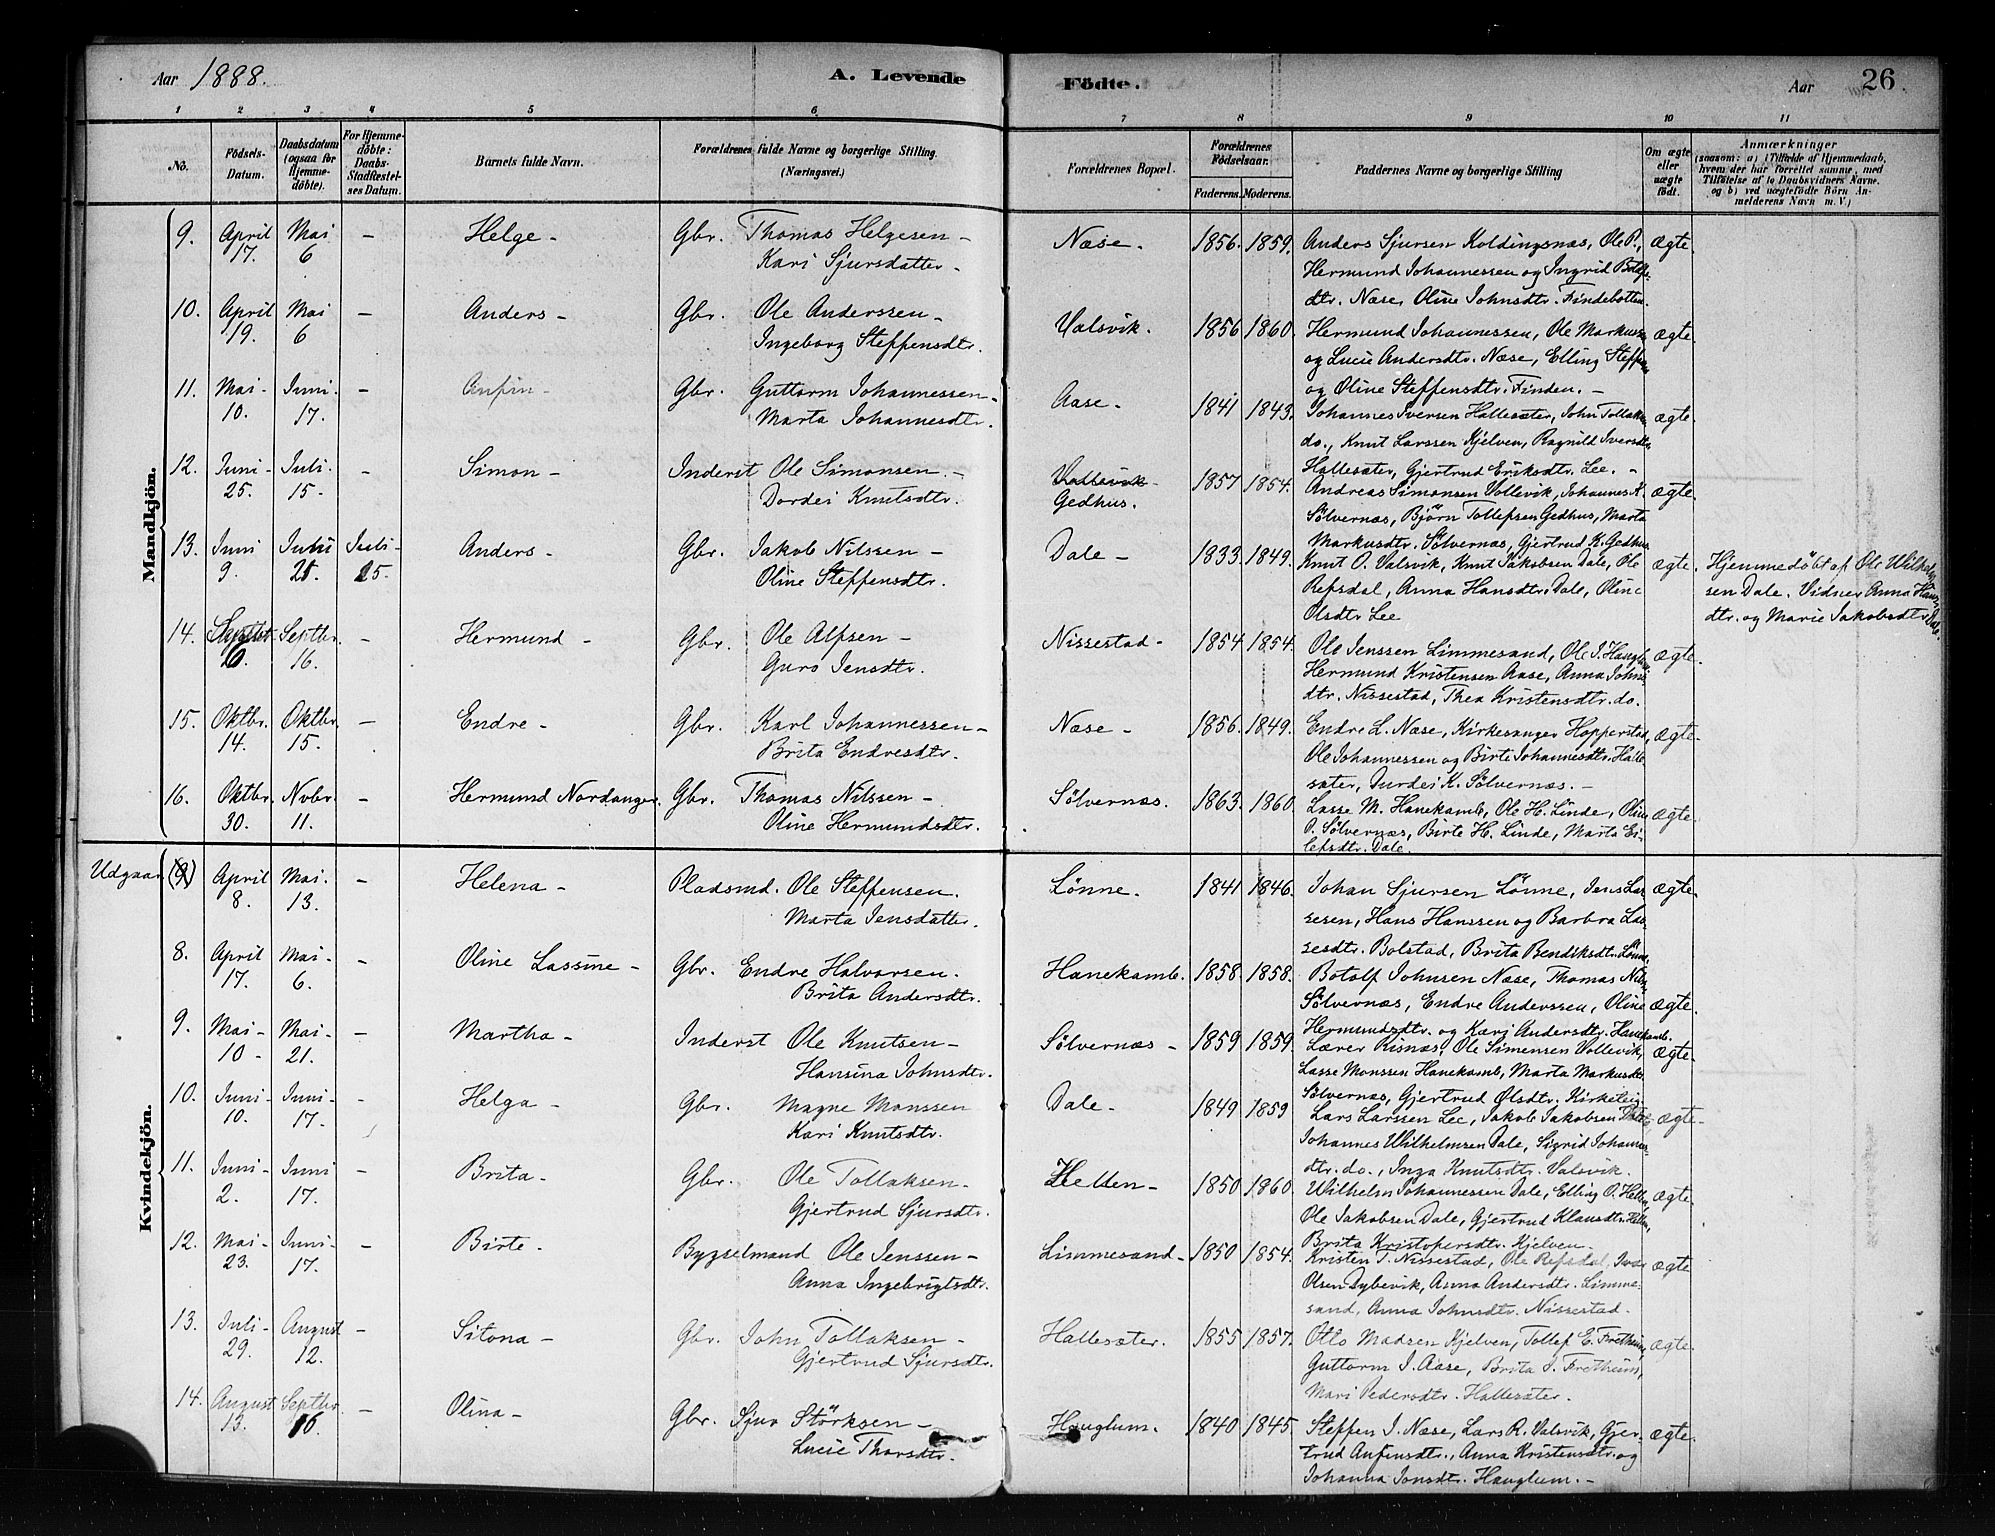 Aar 1888.
A. Levende Födte.
Aar 26
1 2 3 4 5 6 7 8 9 10 11
No.
Födsels-Datum.
Daabsdatum (ogsaa for Hjemme-döbte).
For Hjemme-döbte: Daabs-Stadfæstel-ses Datum.
Barnets fulde Navn.
Forældrenes fulde Navne og borgerlige Stilling. (Næringsvei.)
Forældrenes Bopæl.
Forældrenes Födselsaar.
Faderens. Moderens.
Faddernes Navne og borgerlige Stilling
Om ægte eller uægte födt.
Anmærkninger
(saasom: a) i Tilfælde af Hjemmedaab, hvem der har forrettet samme, med Tilföielse af to Daabsvidners Navne, og b) ved uægtefödte Börn An-melderens Navn m. V.)
Mandkjön.
9. April 17. Mai 6 – Helge – Gbr. Thomas Helgesen – Kari Sjursdatter – Næse – 1856. 1859. Anders Sjursen Koldingsnæs, Ole P., ægte
Hermund Johannessen og Ingrid
dtr. Næse, Oline Johnsdtr. Findebotten
10. April 19. Mai 6 – Anders – Gbr. Ole Anderssen – Ingeborg Steffensdtr. Valsvik. 1856 1860. Hermund Johannessen, Ole Markussen ægte
og Lucie Andersdtr. Næse, Elling Steffen
og Oline Steffensdtr. Finden. –
11. Mai 10. Juni 17. – Anfin – Gbr. Guttorm Johannessen – Marta Johannesdtr. Aase – 1841 1843. Johannes Iversen Hallesæter, John Tollaksen ægte
do., Knut Larssen Kjelven, Ragnild Iversdtr.
Hallesæter, Gjertrud Eriksdtr. Lee. –
12. Juni 25. Juli 15. – Simon – Inderst Ole Simonsen – Dordei Knutsdtr. Gedhus. 1857 1854. Andreas Simonsen Vollevik, Johannes K. ægte
Sölvernæs, Björn Tollefsen Gedhus, Marta
Markusdtr. Sölvernæs, Gjertrud K. Gedhus
13. Juni 9. Juli 21. Juli 15. Anders – Gbr. Jakob Nilssen – Oline Steffensdtr. Dale – 1833. 1849. Knut O. Valsvik, Knut Jakobsen Dale, Ole ægte. Hjemmedöbt af Ole Wilhelm
Refsdal, Anna Hansdtr. Dale, Oline sen Dale. Vidner Anna Hans
Olsdtr. Lee dtr. og Marie Jakobsdtr. Dale.
14. Septbr. Septbr. 16. – Hermund – Gbr. Ole Alfsen – Guro Jensdtr. Nissestad – 1854 1854. Ole Jenssen Limmesand, Ole J. Hauglum ægte
Hermund Kristensen Aase, Anna Johns
dtr. Nissestad, Thea Kristensdtr. do.
15. Oktbr. 14. Oktbr. 15. – Endre – Gbr. Karl Johannessen – Brita Endresdtr. Næse – 1856. 1849. Endre L. Næse, Kirkesanger Hopperstad, ægte
Ole Johannessen og Birte Johannesdtr. Halle
sæter, Durdei K. Sölvernæs. –
16. Oktbr. 30. Nvbr. 11. – Hermund Nordanger. Gbr. Thomas Nilssen – Oline Hermundsdtr. Sölvernæs. 1863. 1860. Lasse M. Hanekamb, Ole H. Linde, Oline ægte
O. Sölvernæs, Birte H. Linde, Marta El-
lefsdtr. Dale.
Kvindekjön.
Udgaar (9) April 8. Mai 13. – Helena – Pladsmd. Ole Steffensen. Marta Jensdatter. Lönne. 1841 1846. Johan Sjursen Lönne, Jens Las ægte
sesen, Hans Hanssen og Barbra Las
sesdtr. Bolstad, Brita Bendiksdtr. Lönne.
8. April 17. Mai 6. – Oline Lassine – Gbr. Endre Halvorsen. Brita Andersdtr. Hanekamb. 1858. 1858. Botolf Johnsen Næse, Thomas Nils
Sölvernæs, Endre Anderssen, Oline ægte
Hermundsdtr. og Kari Andersdtr. Hanekamb.
9. Mai 10 – Mai 21. – Martha – Inderst Ole Knutsen – Hansina Johnsdtr. Sölvernæs – 1859 1859. Lærer Risnæs, Ole Simensen Vollevik, ægte
Lasse Monssen Hanekamb, Marta Markusdtr.
Sölvernæs, Gjertrud Olsdtr. Kirketeig
10. Juni 10. Juni 17. – Helga – Gbr. Magne Monssen Kari Knutsdtr. Dale – 1849 1859 Lars Larssen Lee, Jakob Jakobsen Dale ægte
Johannes Wilhelmsen Dale, Sigrid Johannes
dtr. do., Inga Knutsdtr. Valsvik.
11. Juni 2. Juni 17. – Brita – Gbr. Ole Tollaksen – Gjertrud Sjursdtr. Hellen – 1850 1860. Wilhelm Johannessen Dale, Elling O. Hellen, ægte
Ole Jakobsen Dale, Gjertrud Klausdtr. Hellen,
Brita Kristofersdtr. Kjelven
12. Mai 23. Juni 17. – Birte – Bygselmand Ole Jenssen – Anna Ingebrigtsdtr. Limmesand – 1850 1854. Kristen T. Nissestad, Ole Refsdal, Ivar ægte
Olsen Dybevik, Anna Andersdtr. Limme-
sand, Anna Johnsdtr. Nissestad.
13. Juli 29. August 12. – Sitona – Gbr. John Tollaksen – Gjertrud Sjursdtr. Hallesæter. 1855 1857. Otto Madsen Kjelven, Tollef E. Fretheim, ægte
Guttorm J. Aase, Brita J. Fretheim,
Mari Pedersdtr. Hallesæter.
14. August 13. Septbr. 16. – Olina – Gbr. Sjur Störksen – Lucie Thorsdtr. Hauglum. 1840 1845. Steffen J. Næse, Lars R. Valsvik, Gjer- ægte
trud Anfinsdtr., Anna Kristensdtr. og
Johanna Jonsdtr. Hauglum. –